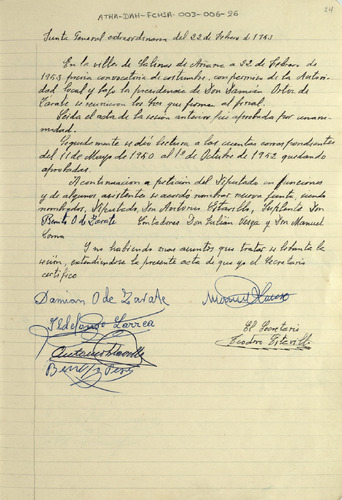 ATHA-DAH-FCMSA-003-006-26
24
Junta General extraordinaria del 22 de Febrero de 1953
En la villa de Salinas de Añana a 22 de Febrero de
1953 previa convocatoria de costumbre, con permiso de la Autori-
dad local y bajo la presidencia de Don Damián Ortiz de
Zarate se reunieron los Sres que firman al final.
Leida el acta de la sesión anterior fue aprobada por unani-
midad.
Seguidamente se dió lectura a las cuentas correspondientes
del 11 de Mayo de 1950 al 1º de Octubre de 1952 quedando
aprobadas.
A continuación a petición del Diputado en funciones
y de algunos asistentes se acordo nombrar nueva Junta, siendo
nombrados, Diputado, Don Antonio Estavillo, Suplente Don
Benito O de Zarate Contadores Don Julián Vesga y Don Manuel
Y no habiendo mas asuntos que tratar se levanta la
sesión, extendiendose la presente acta de que yo el Secretario
certifico
Damian O de Zarate
Manuel
Ildefonso Larrea
El Secretario
Antonio Estavillo
Teodoro Estavillo